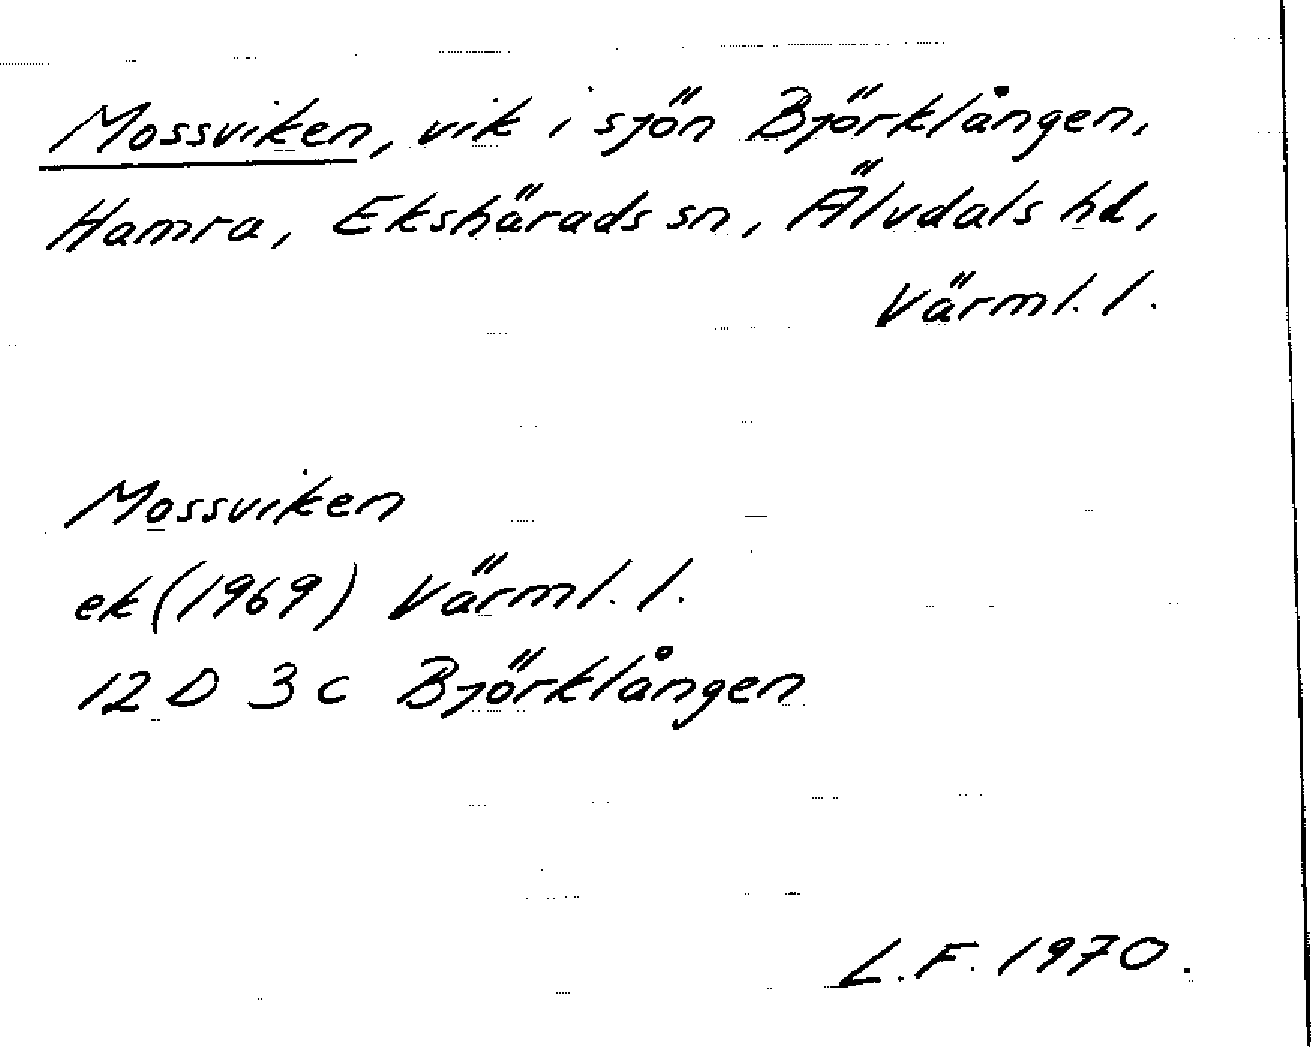 Mossviken, vik i sjön Björklången,
Hamra, Ekshärads sn, Älvdals hd,
Värml. l.
Mossviken
ek (1969) Värml. l.
12 D 3 c Björklången
L.F. 1970.